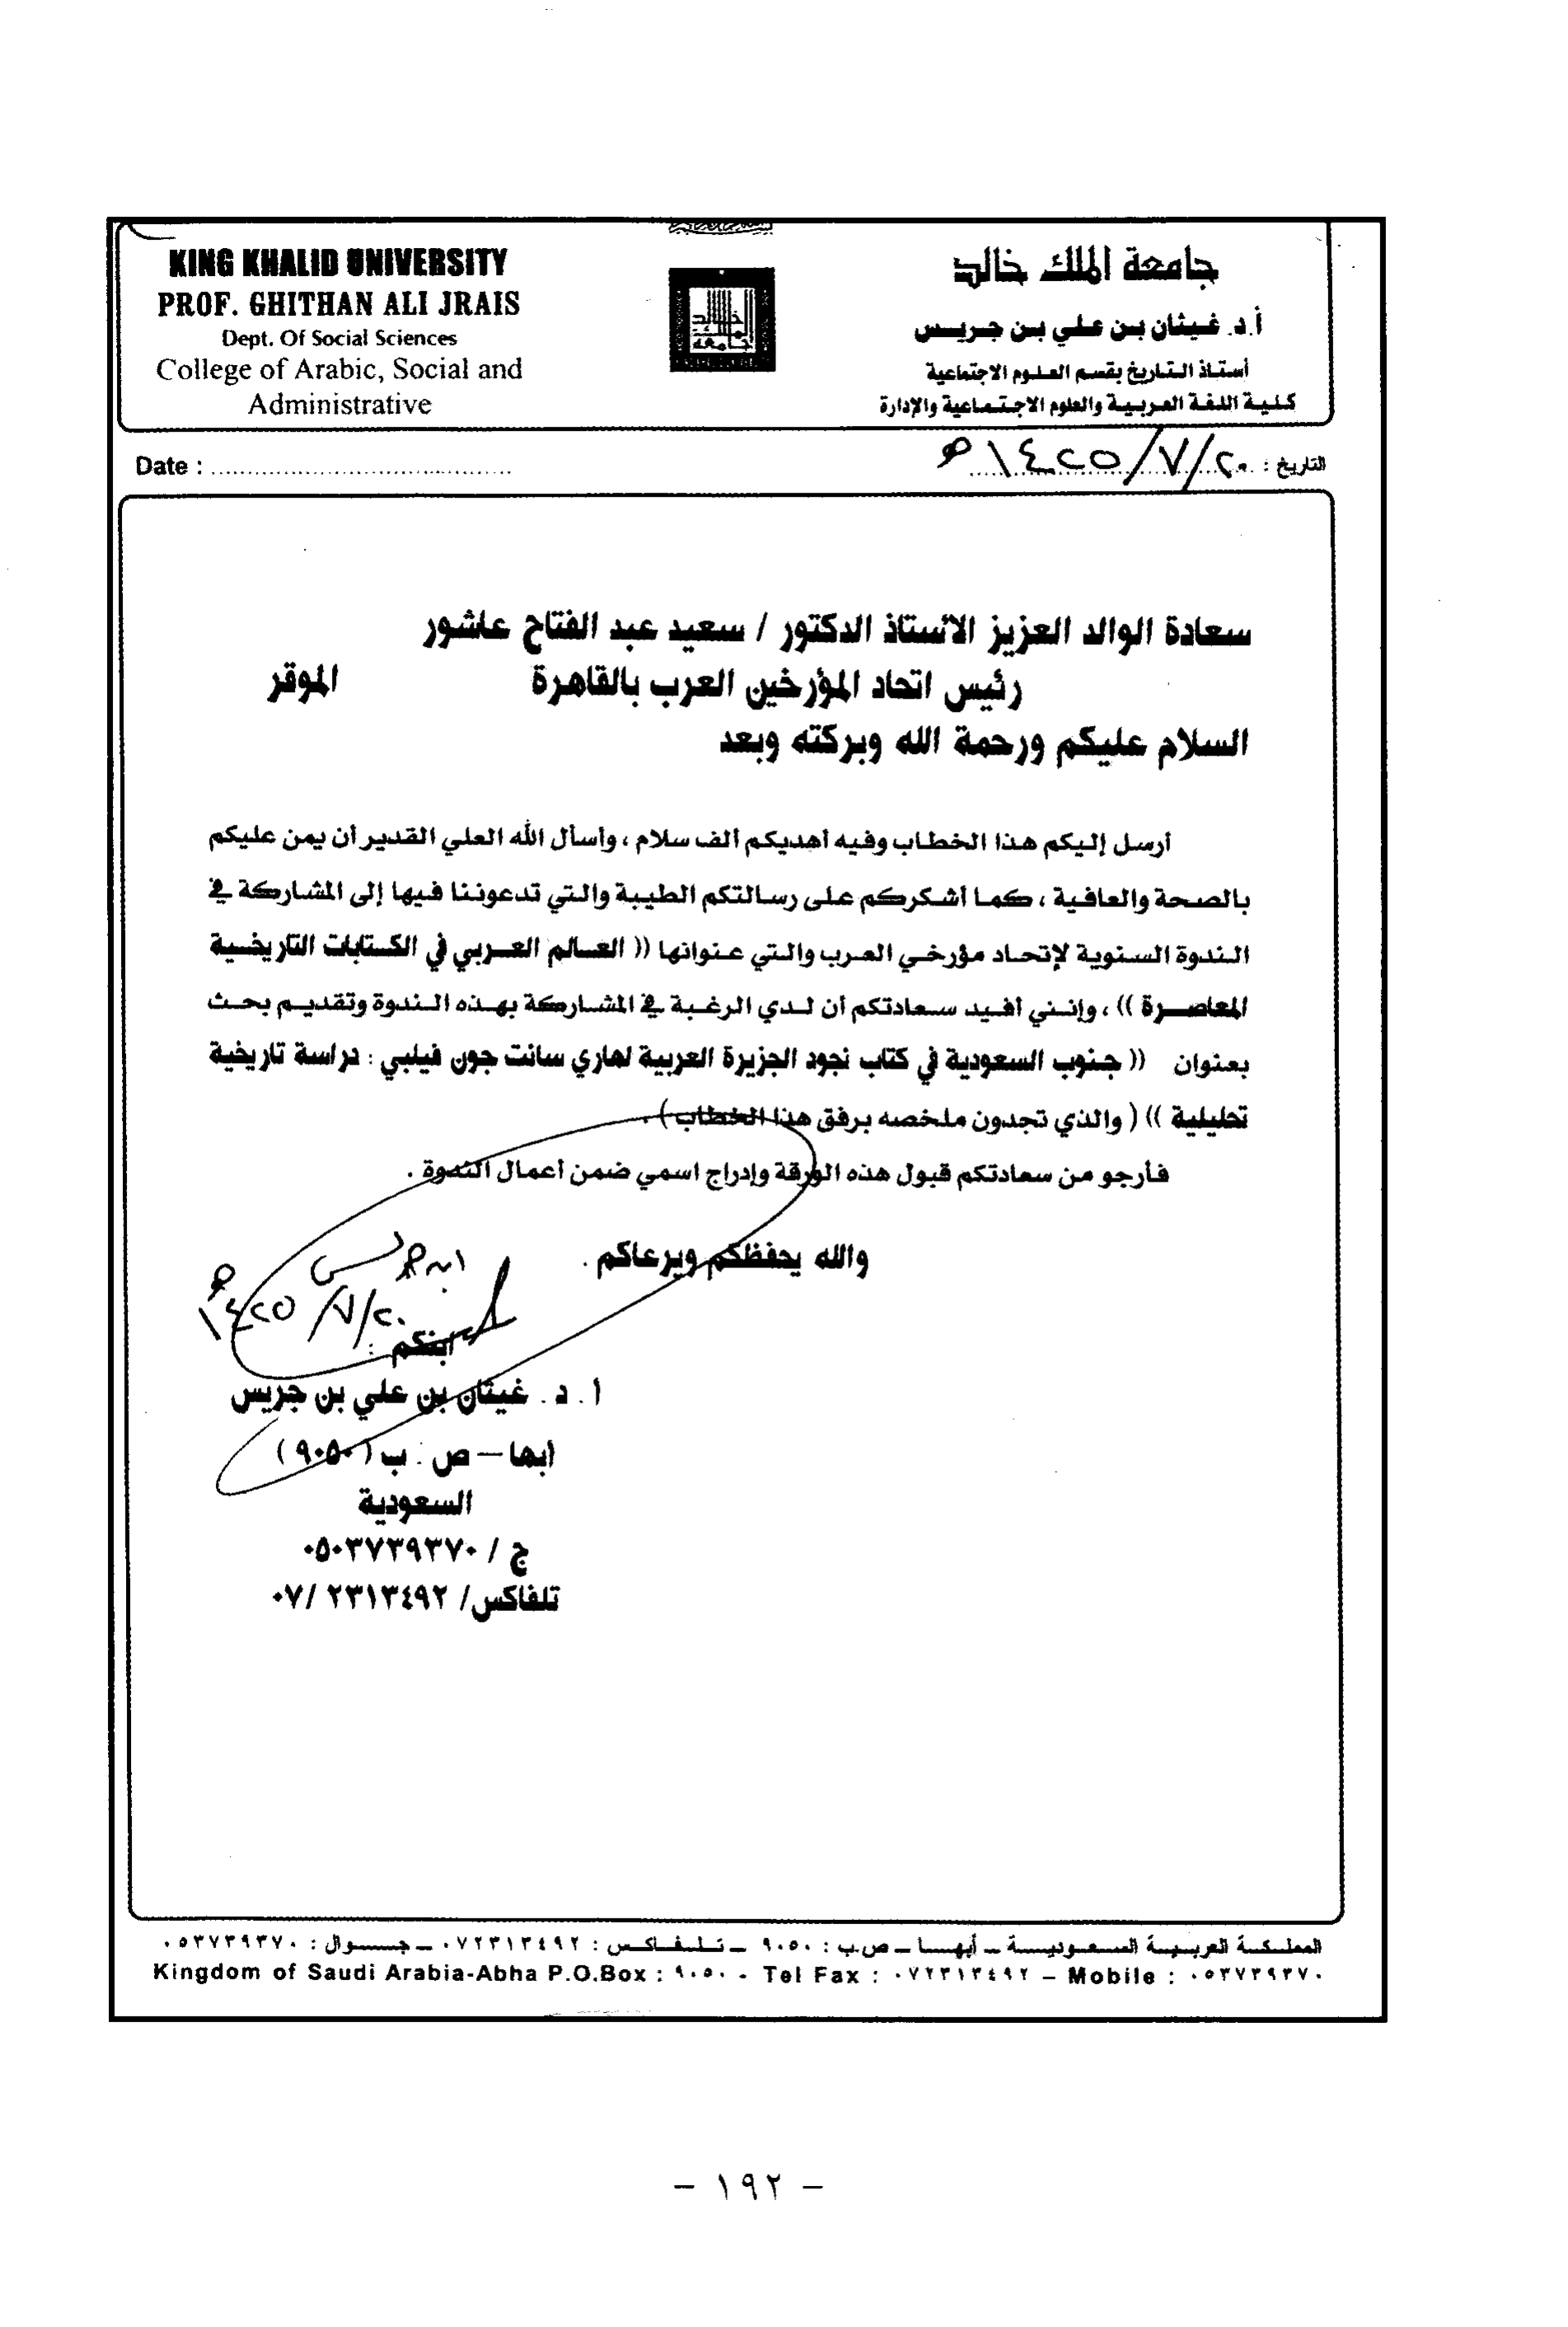 KING KHALID UNIVERSITY
PROF. GHITHAN ALI JRAIS
Dept. Of Social Sciences
College of Arabic, Social and
Administrative
جامعة الملك خالد
أ.د. غيثان بن علي بن جريس
أستاذ التاريخ بقسم العلوم الاجتماعية
كلية اللغة العربية والعلوم الاجتماعية والإدارة
جامعة الملك خالد
Date :
التاريخ : ٢٠/٧/١٤٢٥هـ
سعادة الوالد العزيز الأستاذ الدكتور / سعيد عبد الفتاح عاشور
رئيس اتحاد المؤرخين العرب بالقاهرة الموقر
السلام عليكم ورحمة الله وبركته وبعد
أرسل إليكم هذا الخطاب وفيه أهديكم ألف سلام ، وأسأل الله العلي القدير أن يمن عليكم
بالصحة والعافية ، كما أشكركم على رسالتكم الطيبة والتي تدعوننا فيها إلى المشاركة في
الندوة السنوية لإتحاد مؤرخي العرب والتي عنوانها (( العالم العربي في الكتابات التاريخية
المعاصرة )) ، وإنني أفيد سعادتكم أن لدي الرغبة في المشاركة بهذه الندوة وتقديم بحث
بعنوان (( جنوب السعودية في كتاب نجود الجزيرة العربية لهاري سانت جون فيلبي : دراسة تاريخية
تحليلية )) ( والذي تجدون ملخصه برفق هذا الخطاب ) .
فأرجو من سعادتكم قبول هذه الورقة وإدراج اسمي ضمن أعمال الندوة .
والله يحفظكم ويرعاكم .
٢٠/٧/١٤٢٥هـ
ابنكم :
أ . د . غيثان بن علي بن جريس
أبها – ص . ب ( ٩٠٥٠ )
السعودية
ج / ٠٥٠٣٧٣٩٣٧٠
تلفاكس/ ٢٣١٣٤٩٢ /٠٧
المملكة العربية السعودية – أبها – ص.ب : ٩٠٥٠ – تلفاكس : ٠٧٢٣١٣٤٩٢ – جوال : ٠٥٣٧٣٩٣٧٠
Kingdom of Saudi Arabia-Abha P.O.Box : ٩٠٥٠ - Tel Fax : ٠٧٢٣١٣٤٩٢ – Mobile : ٠٥٣٧٣٩٣٧٠
– ١٩٢ –